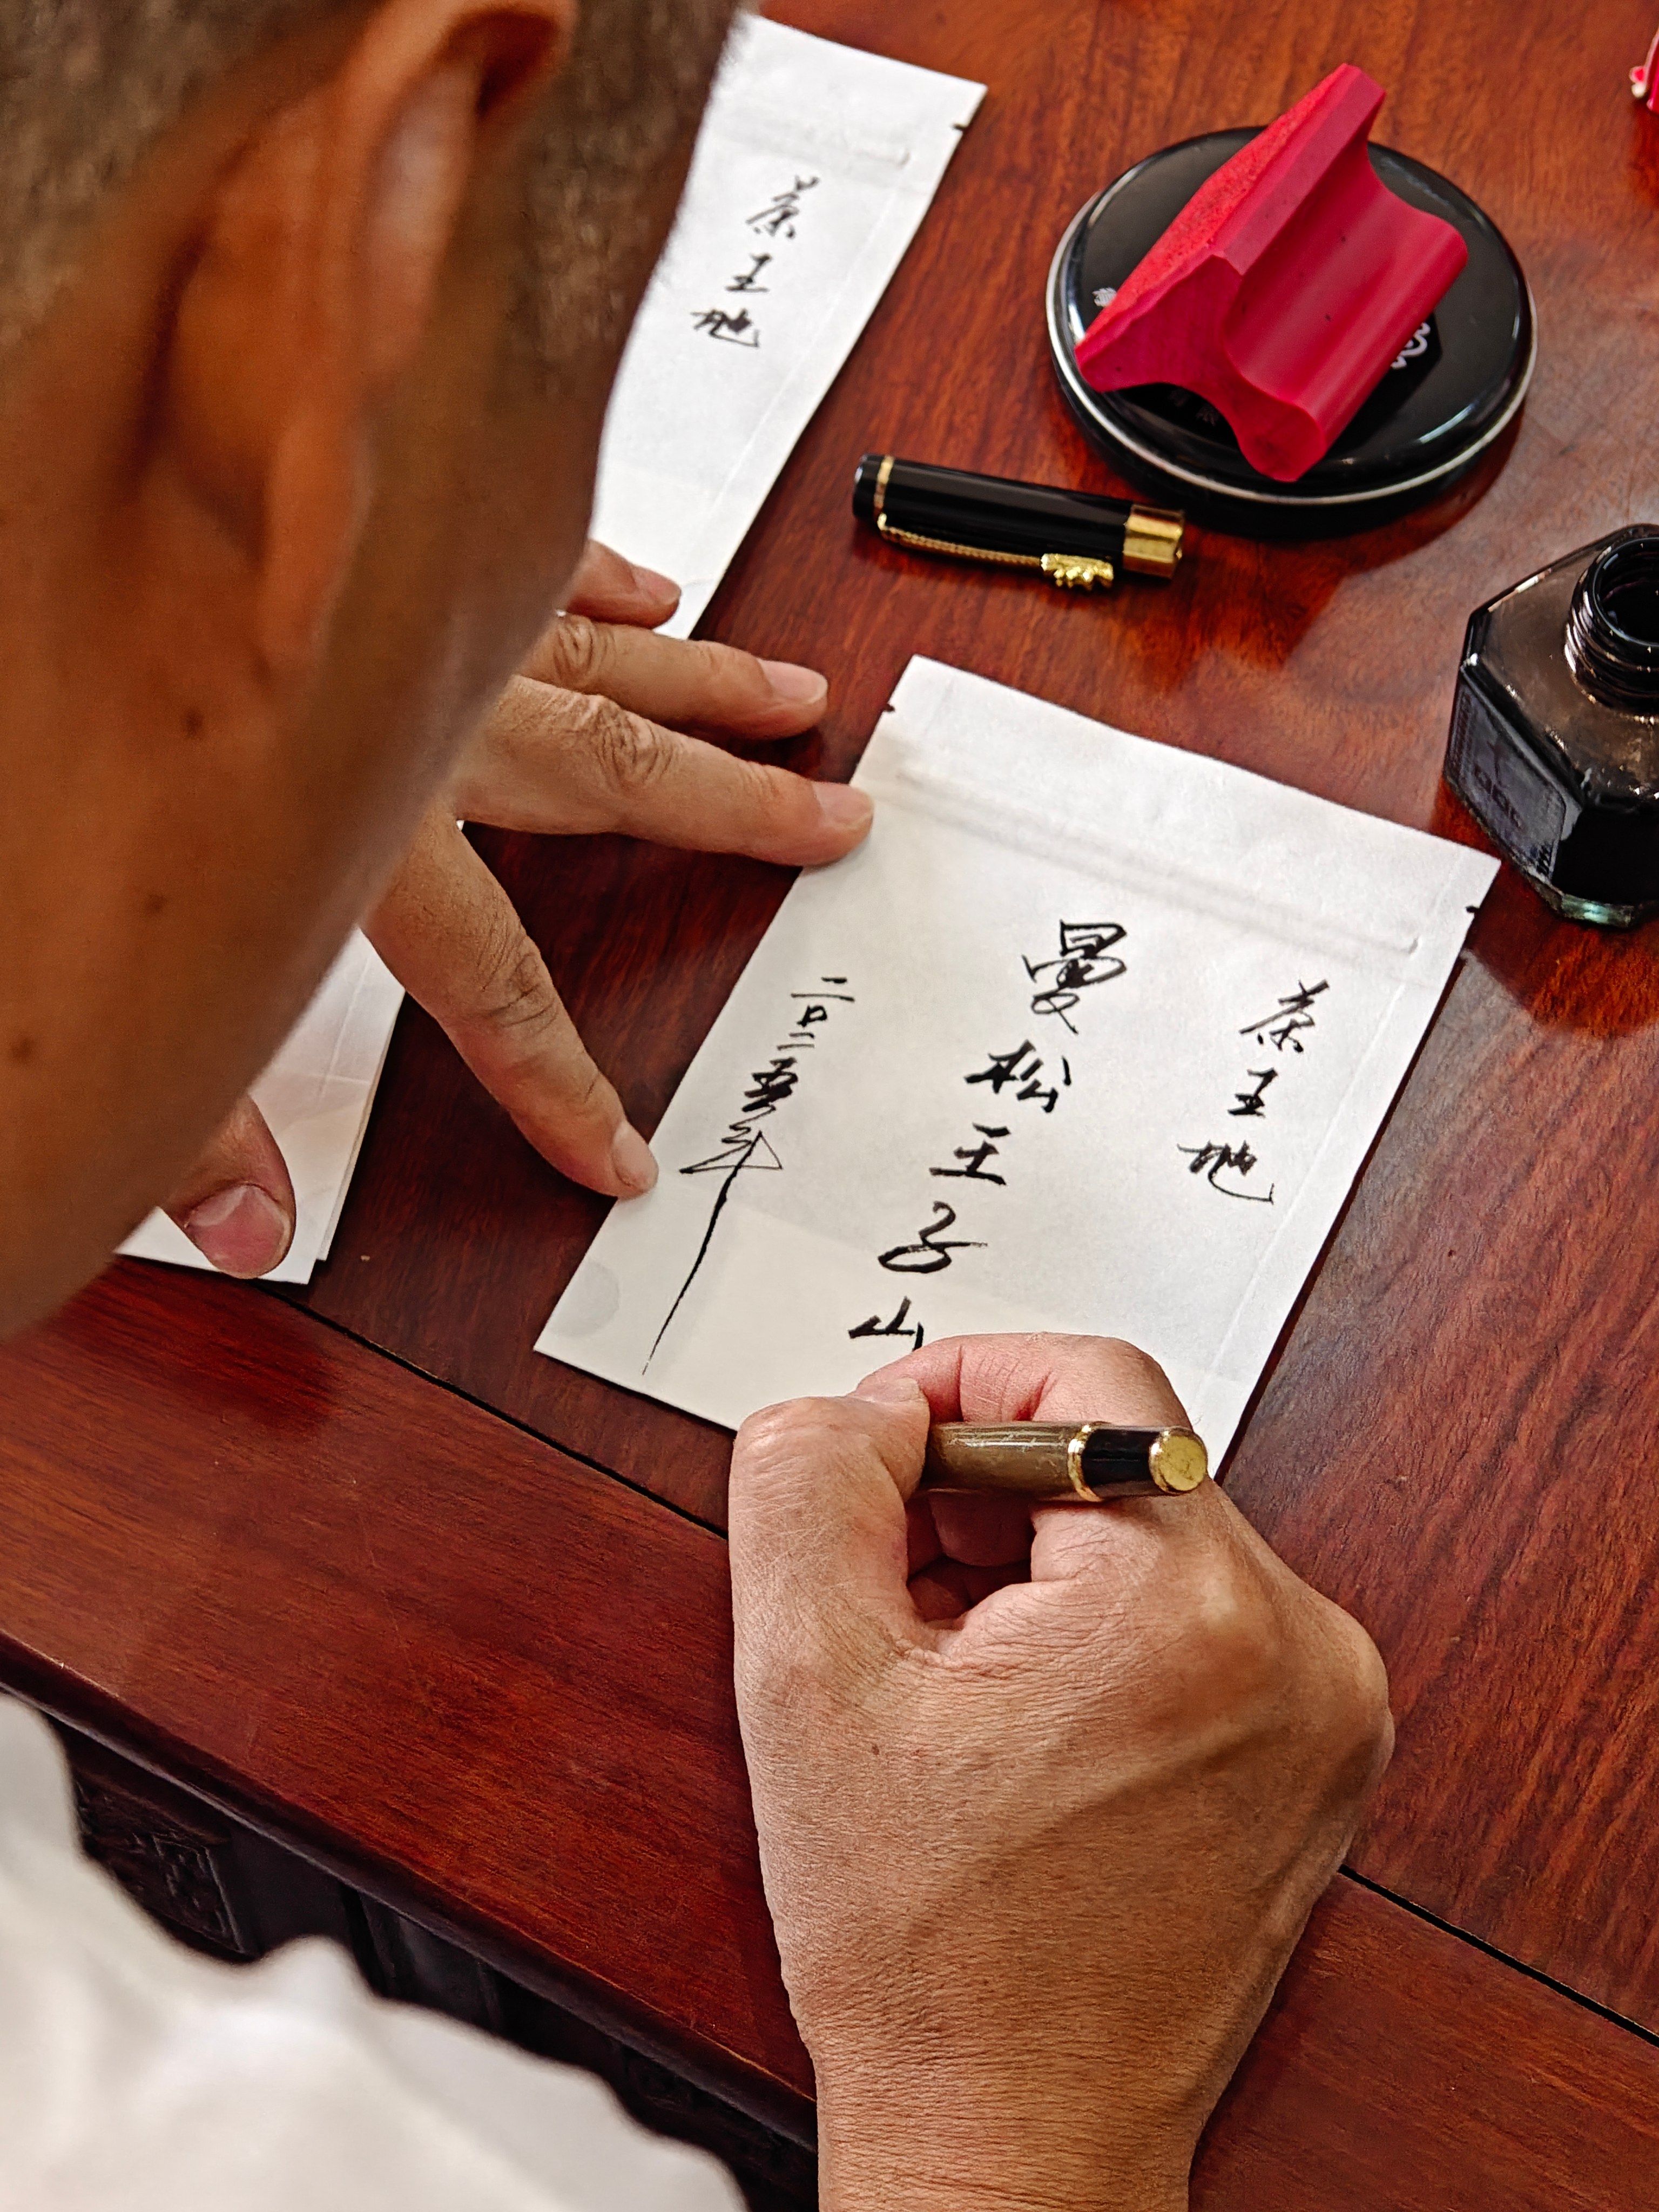 茶王地
曼松王子山
二〇二五年
茶王地